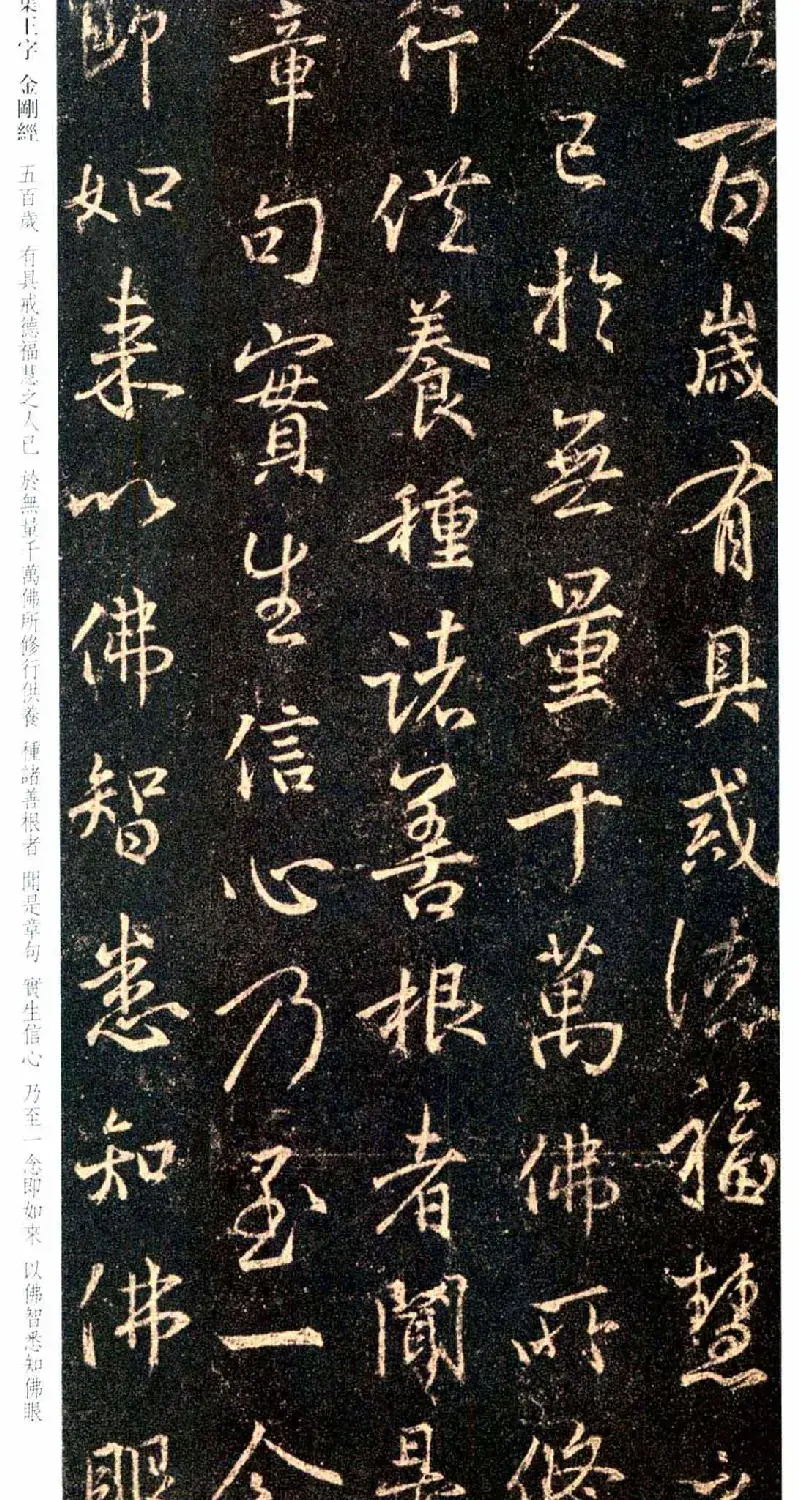 五百歲有具戒德福慧之
人已於無量千萬佛所修
行供養種諸善根者聞是
章句實生信心乃至一念
即如來以佛智悉知佛眼
集王字 金剛經 五百歲 有具戒德福慧之人已 於無量千萬佛所修行供養 種諸善根者 聞是章句 實生信心 乃至一念即如來 以佛智悉知佛眼